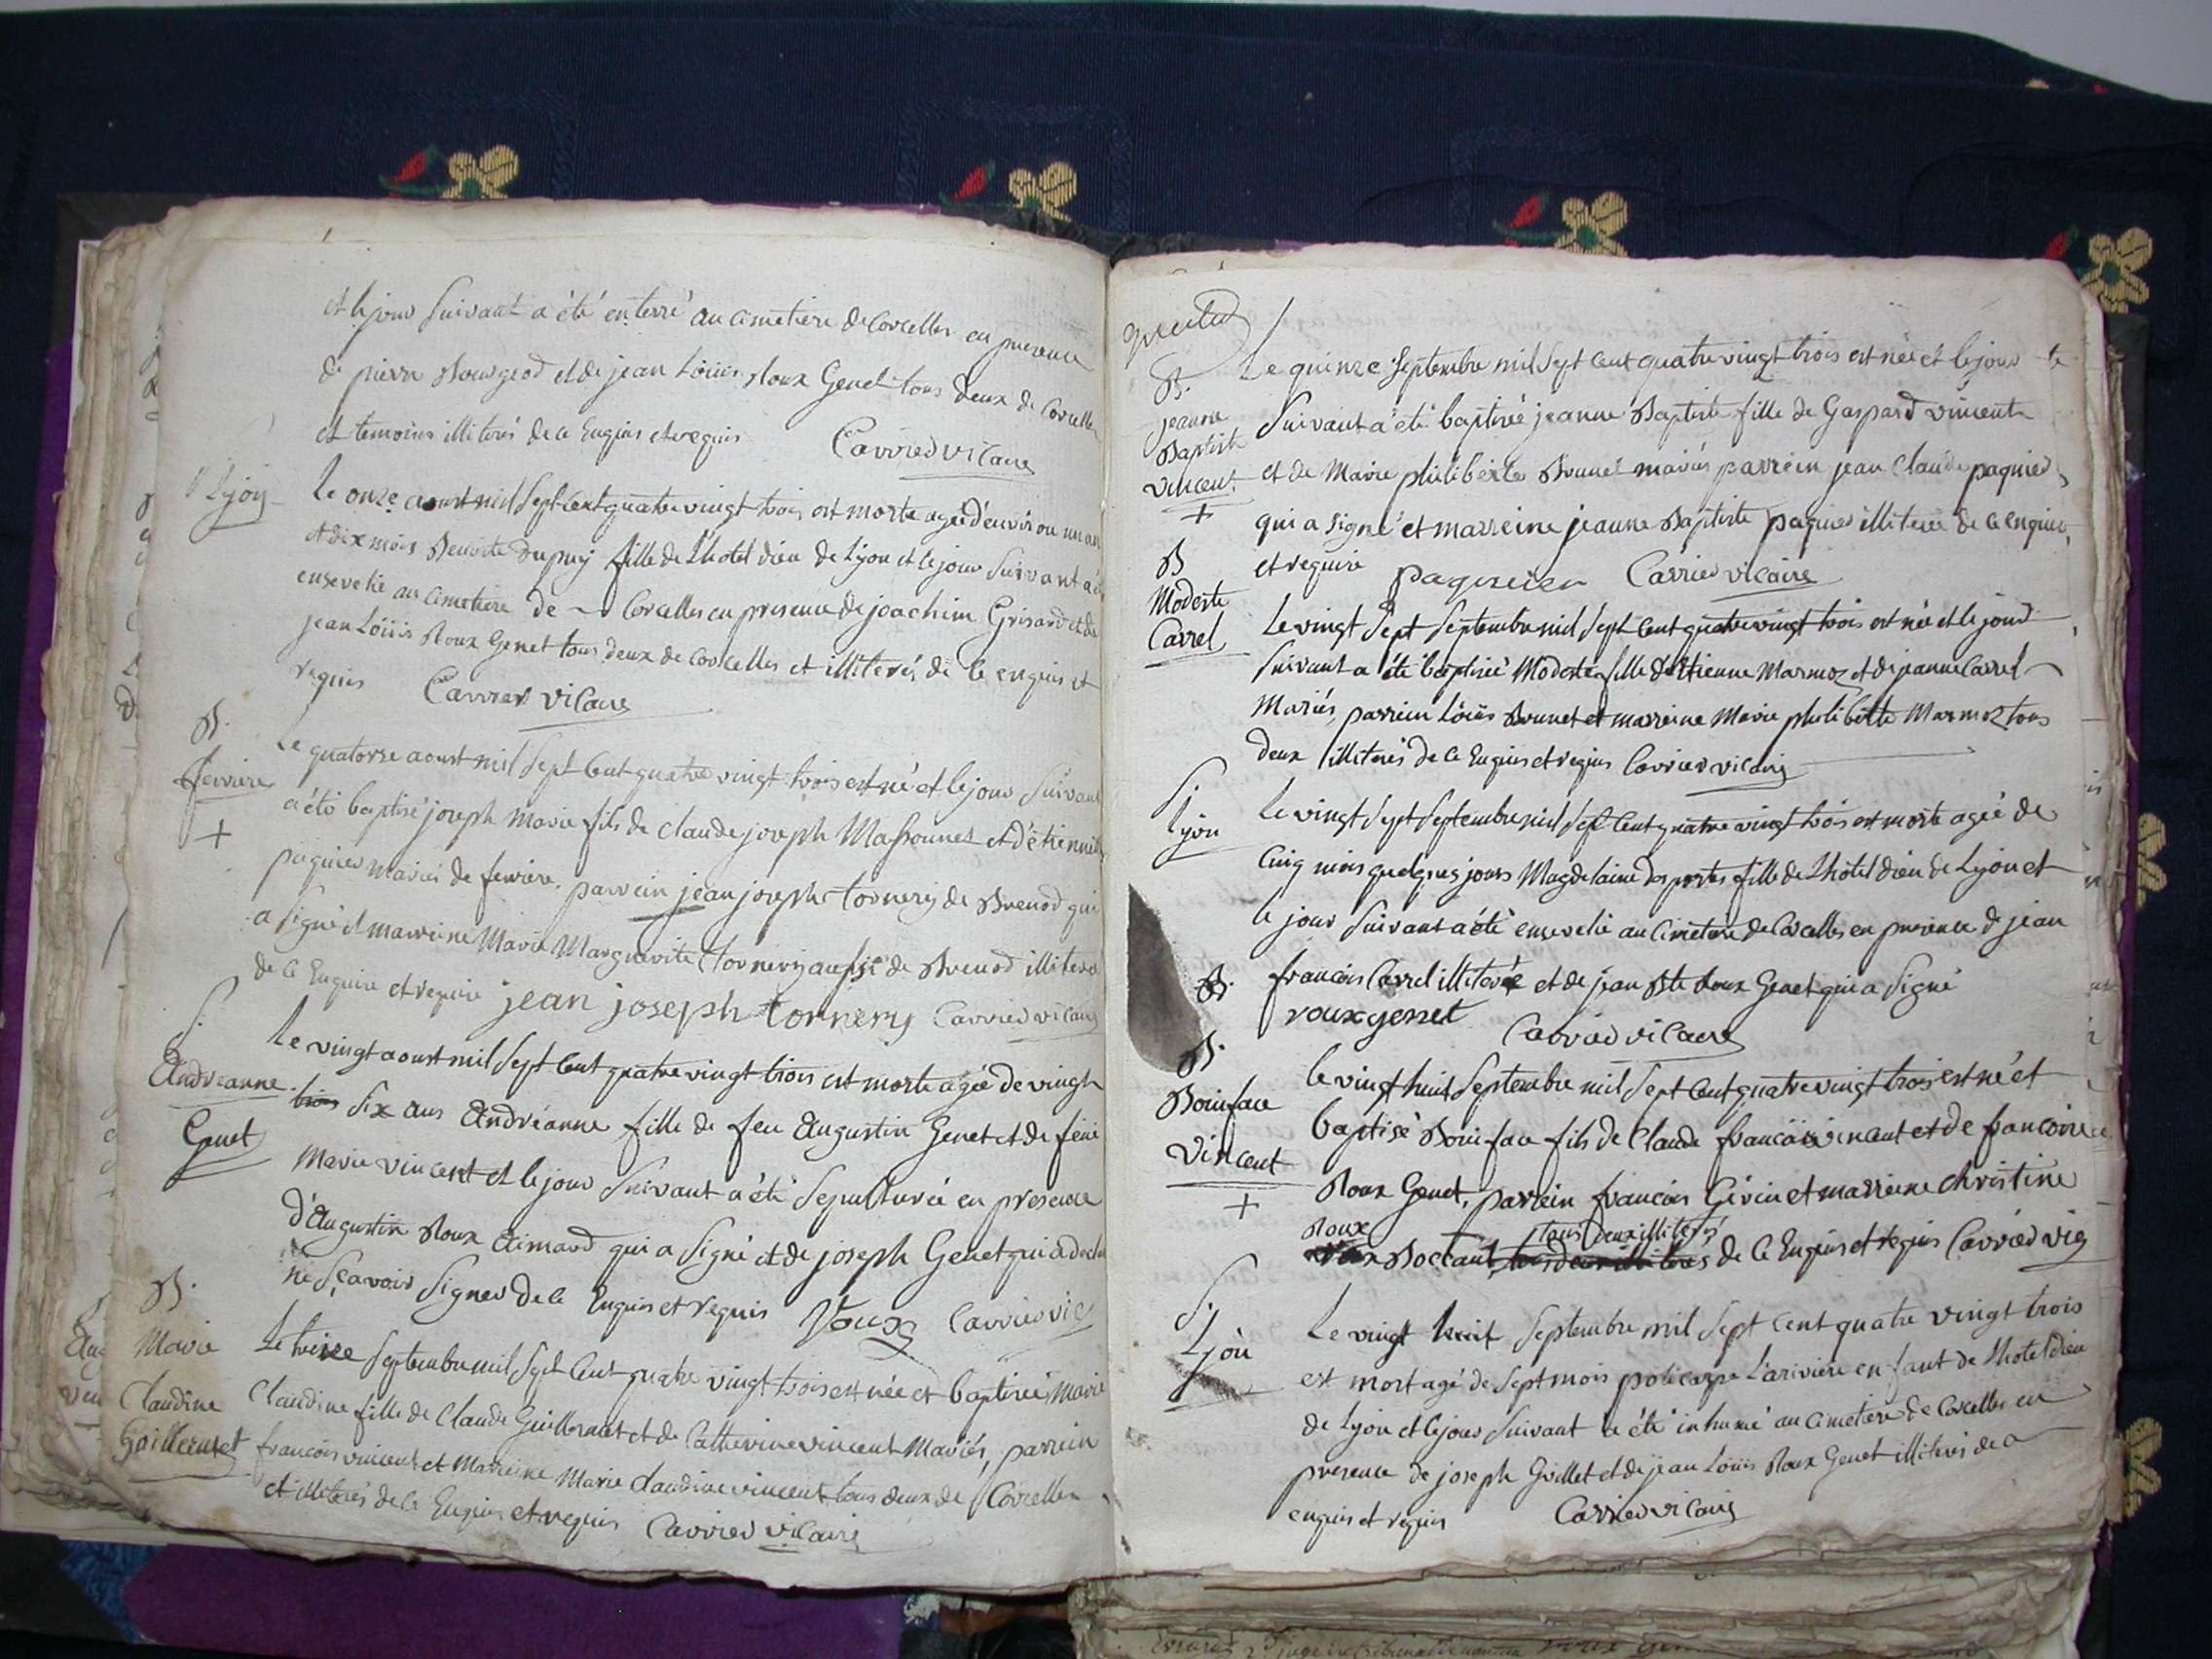 et le jour suivant a été enterré au cimetiere de Corcelles en presence
de pierre Bourgeod et de jean Loüis Roux Genet tous deux de Corcelles
et temoins illiterés de ce Enquis et requis Carrier vicaire
S Lyon
Le onze aoust mil sept cent quatre vingt trois est morte agée d'environ un an
et dix mois Benoite Dupuy fille de L'hotel dieu de Lyon et le jour suivant a été
ensevelie au cimetiere de Corcelles en presence de joachim Grisard et de
jean Loüis Roux Genet tous deux de Corcelles et illiterés de ce enquis et
requis Carrier vicaire
B.
ferriere
+
Le quatorze aoust mil sept cent quatre vingt trois est né et le jour suivant
a été baptisé joseph Marie fils de claude joseph Massonnet et d'étiennette
paquier mariés de ferriere. parrein jean joseph tornery de Brenod qui
a signé et marreine Marie Marguerite tornery aussi de Brenod illiteré
de ce Enquise et requise jean joseph tornery Carrier vicaire
S.
Andréanne
Genet
Le vingt aoust mil sept cent quatre vingt trois est morte agée de vingt
trois six ans Andréanne fille de feu Augustin Genet et de feüe
Marie vincent et le jour suivant a été sepulturée en presence
d'Augustin Roux Aimard qui a signé et de joseph Genet qui a declaré
ne sçavoir signer de ce Enquis et requis Roux Carrier vic
B.
Marie
Claudine
Guillermet
Le treize septembre mil sept cent quatre vingt trois est née et baptisée Marie
Claudine fille de Claude Guillermet et de Catherine vincent Mariés, parrein
françois vincent et Marreine Marie claudine vincent tous deux de Corcelles
et illiterés de ce Enquis et requis Carrier vicaire
B.
jeanne
Baptiste
vincent
+
Le quinze septembre mil sept cent quatre vingt trois est née et le jour
suivant a été baptisée jeanne Baptiste fille de Gaspard vincent
et de Marie philiberte Brunet mariés parrein jean Claude paquier
qui a signé et marreine jeanne Baptiste paquier illiterée de ce enquise
et requise paquier Carrier vicaire
B
Modeste
Carrel
Le vingt sept septembre mil sept cent quatre vingt trois est née et le jour
suivant a été baptisée Modeste fille d'Etienne Marmoz et de jeanne Carrel
Mariés, parrein Loüis Brunet et marreine Marie philiberte Marmoz tous
deux illiterés de ce Enquis et requis Carrier vicaire
S.
Lyon
Le vingt sept septembre mil sept cent quatre vingt trois est morte agée de
cinq mois quelques jours Magdelaine Desportes fille de L'hotel dieu de Lyon et
le jour suivant a été ensevelie au cimetiere de Corcelles en presence de jean
françois Carrel illiteré et de jean Bte Roux Genet qui a signé
roux genet Carrier vicaire
B.
B.
Boniface
Vincent
+
Le vingt huit septembre mil sept cent quatre vingt trois est né et
baptisé Boniface fils de Claude françois vincent et de francoise
Roux Genet, parrein françois Girin et marreine christine
Roux tous deux illiterés
Boccaut de ce Enquis et requis Carrier vic
S.
Lyon
Le vingt huit septembre mil sept cent quatre vingt trois
est mort agé de sept mois policarpe Lariviere enfant de L'hotel dieu
de Lyon et le jour suivant a été inhumé au cimetiere de Corcelles en
presence de joseph Guillet et de jean Loüis Roux Genet illiterés de ce
enquis et requis Carrier vicaire